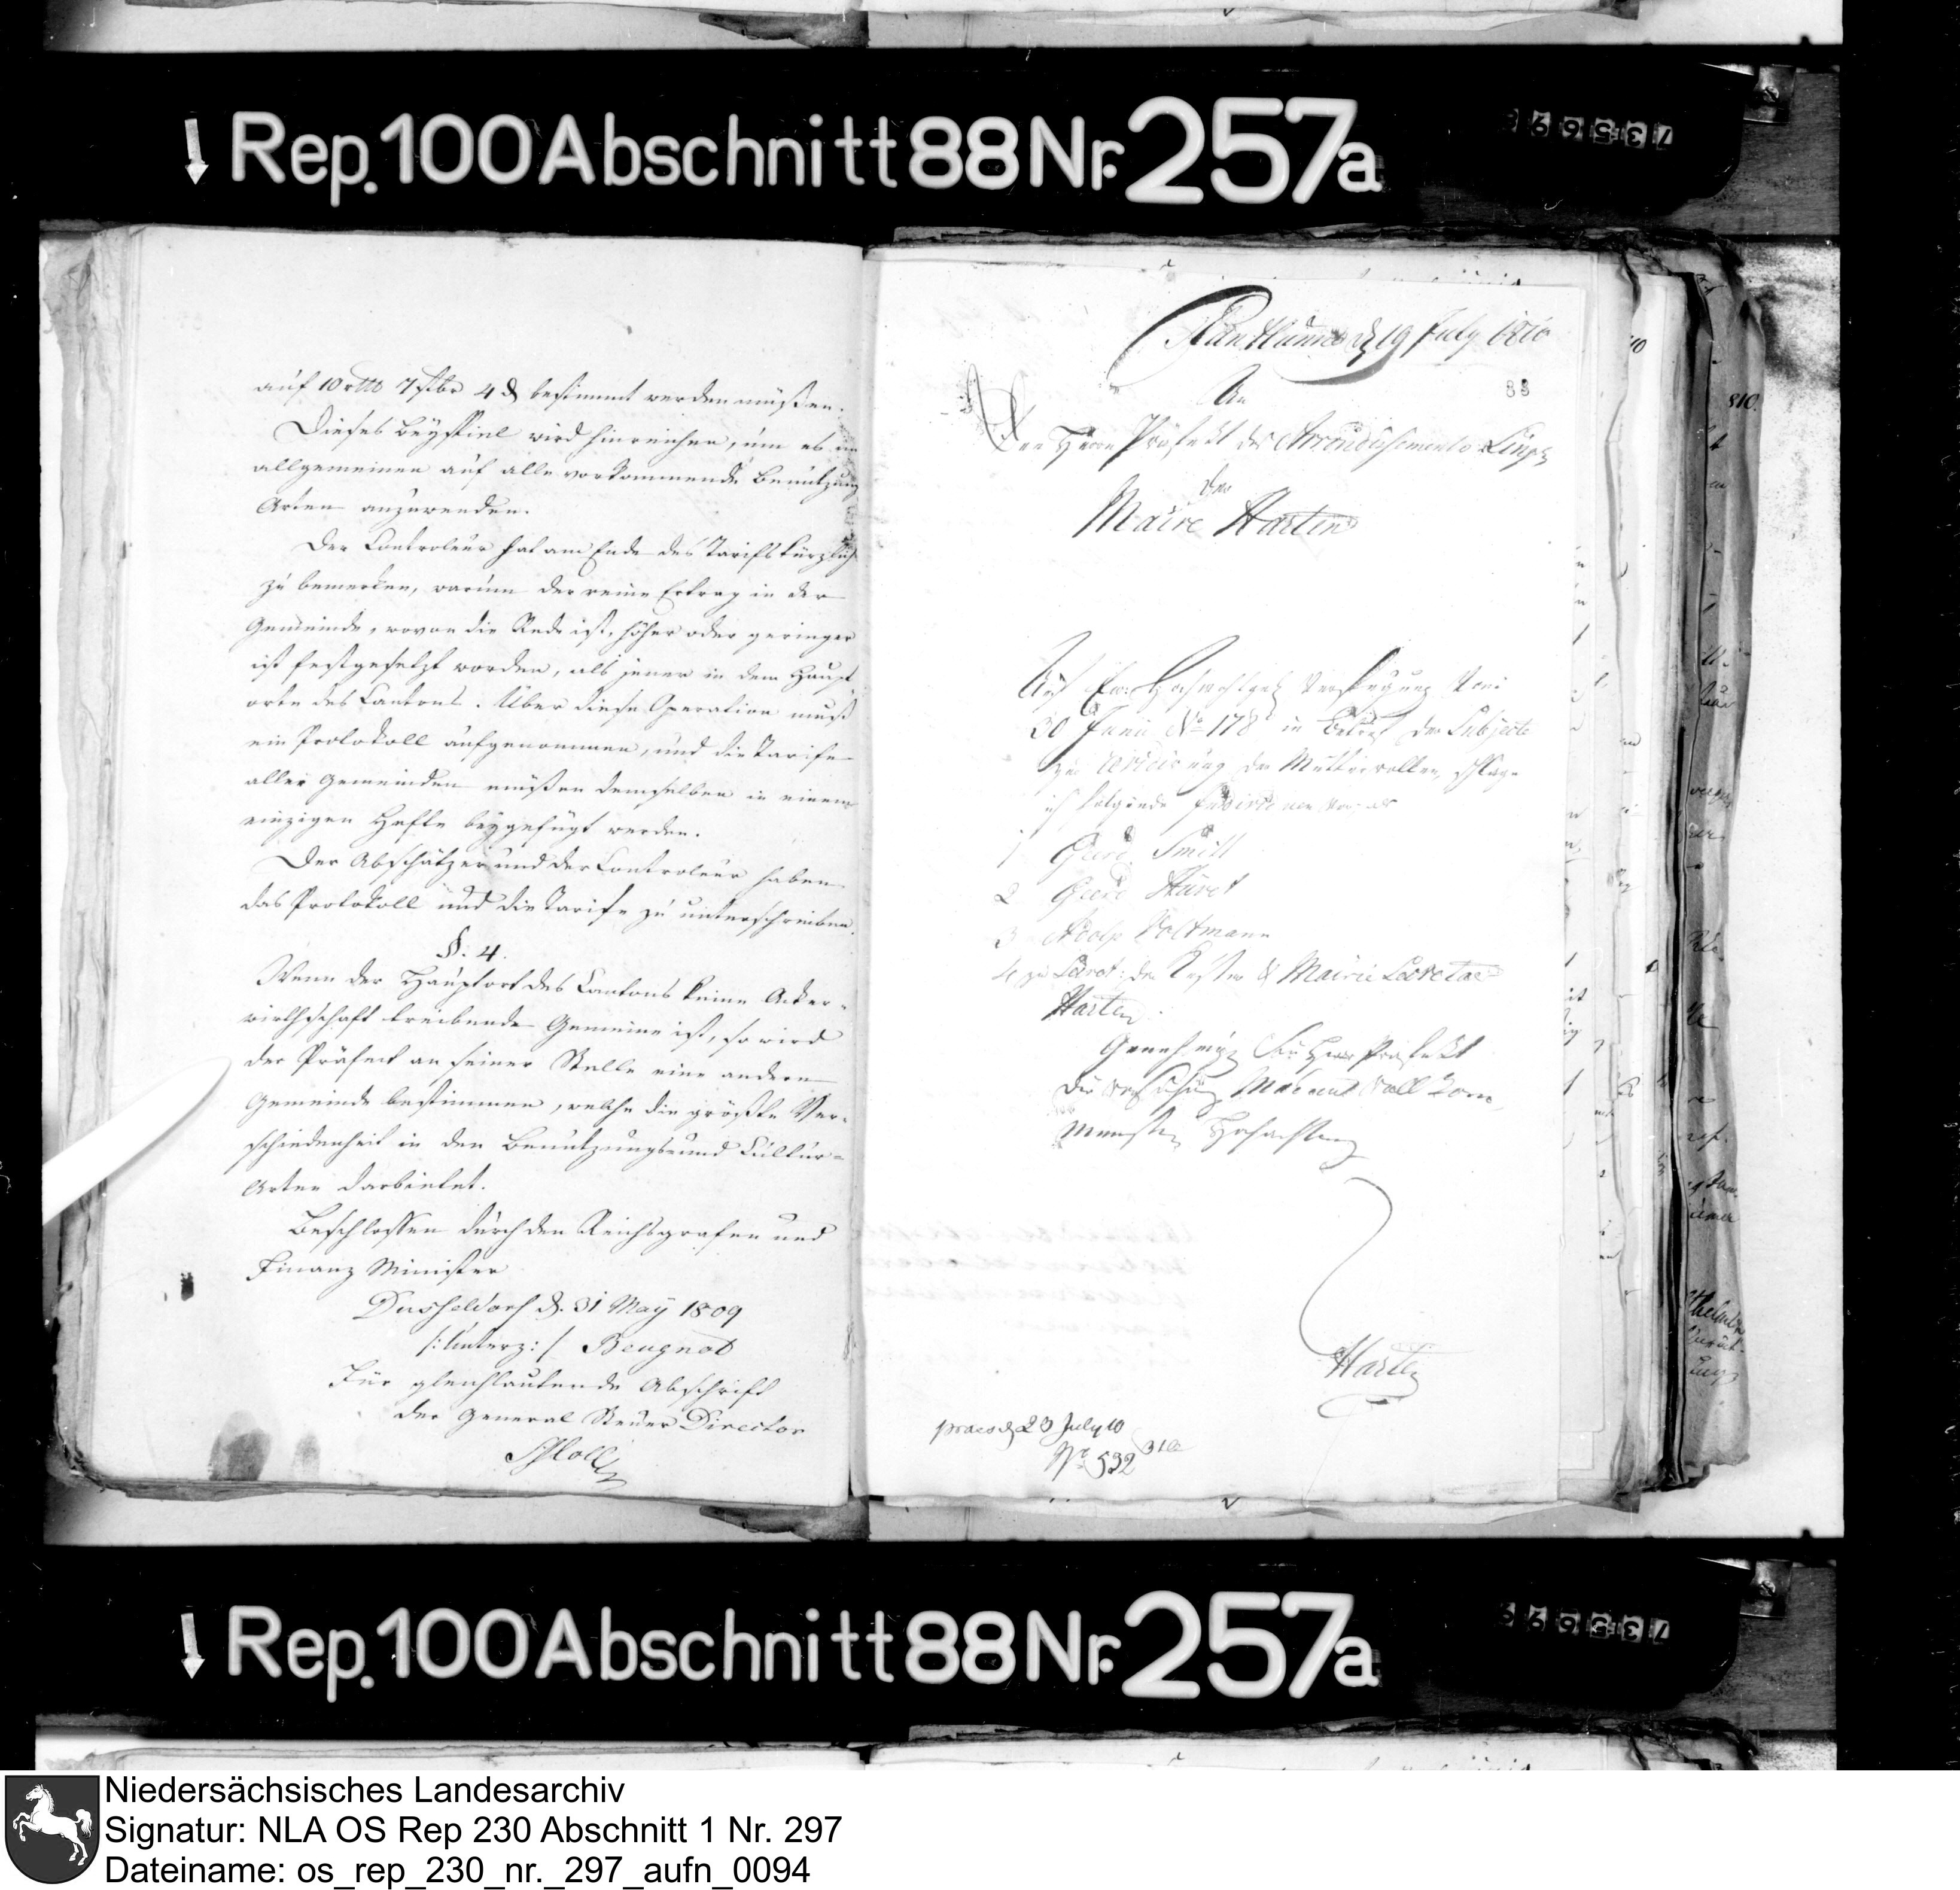 Rep. 100 Abschnitt 88 Nr. 257a
735699
auf 10 rtlr 7 stbr 4 d bestimmt werden müßen.
Dieses Beyspiel wird hinreichen, um es im
allgemeinen auf alle vorkommende Benutzung
Arten anzuwenden.
Der Controleur hat am Ende des Tarifs kürzlich
zu bemerken, warum der reine Ertrag in der
Gemeinde, wovon die Rede ist, höher oder geringer
ist festgesetzt worden, als jener in dem Haupt
orte des Cantons. Über diese Operation muß
ein Protokoll aufgenommen, und die Tarife
aller Gemeinden müßen demselben in einem
einzigen Hefte beygefügt werden.
Der Abschätzer und der Controleur haben
das Protokoll und die Tarife zu unterschreiben.
§. 4.
Wenn der Hauptort des Cantons keine Acker-
wirthschaft treibende Gemeine ist, so wird
der Präfect an seiner Stelle eine andere
Gemeinde bestimmen, welche die größte Ver-
schiedenheit in den Benutzungs und Cultur-
Arten darbietet.
Beschlossen durch den Reichsgrafen und
Finanz Minister
Dusseldorf d. 31 May 1809
/: Unterz: / Beugnot
Für gleichlautende Abschrift
der General Steuer Director
d 19 July 1810
88
An
Den Herrn Präfekt des Arrondissements
der
Maire Harten
Auf Ew: Verfügung Vom
30 Junii No 178 in Betref der Subjecte
zur der Mutterrollen, schlage
ich folgende vor als
1 Gerd Smitt
2 Gerd
3 Adolp Voltmann
4 zu Secret: der Küster & Mairie Secretair
Harten
Genehmigen Sie Herr Präfekt
die Versicherung Meiner Vollkom
Mensten Hochachtung
Harten
praes d 23 July 10
No 532
Rep. 100 Abschnitt 88 Nr. 257a
735699
Niedersächsisches Landesarchiv
Signatur: NLA OS Rep 230 Abschnitt 1 Nr. 297
Dateiname: os_rep_230_nr._297_aufn_0094